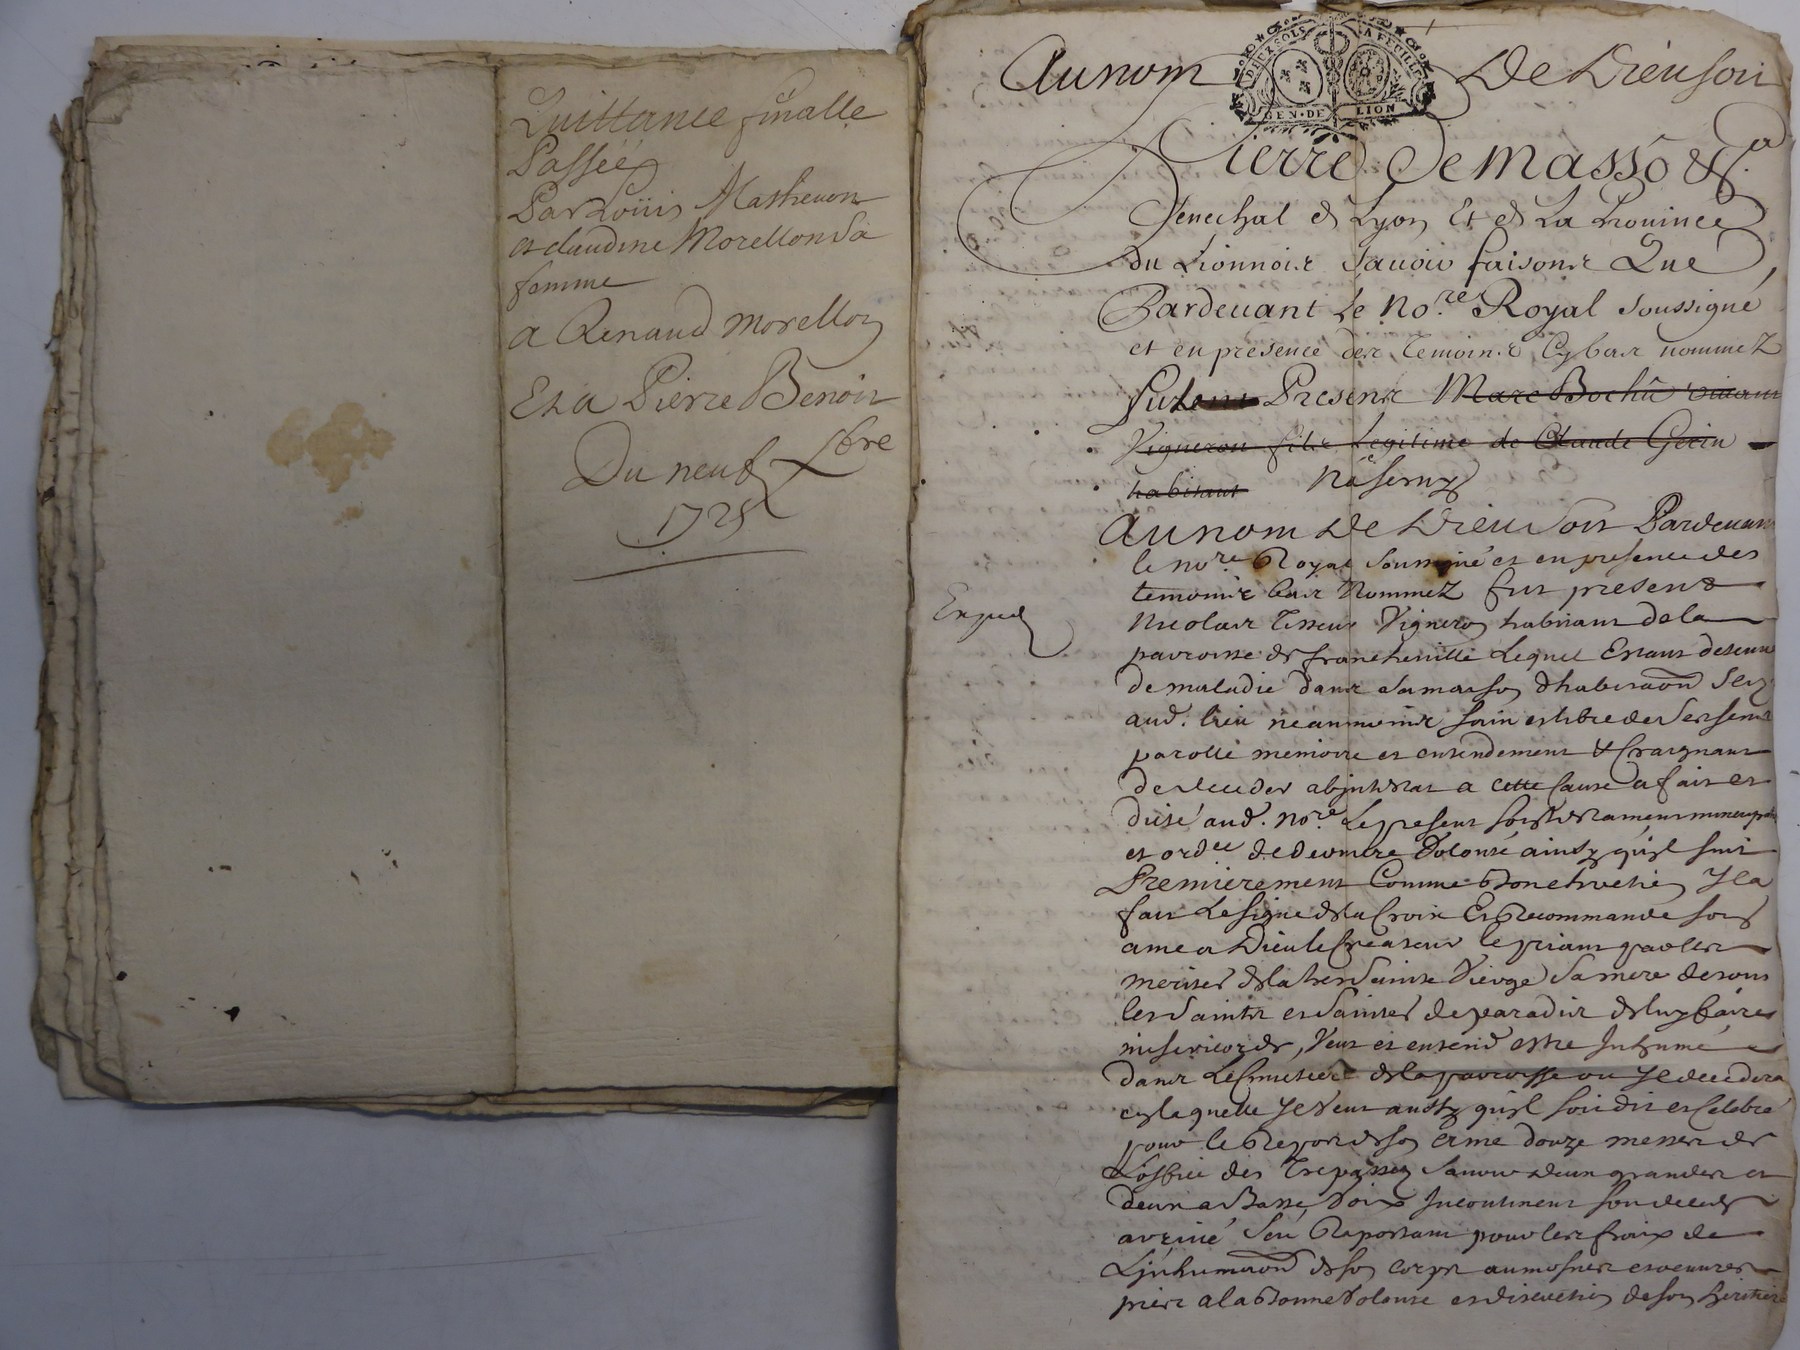 Quittance finalle
Passée
Par Loüis Mathevon
et claudine Morellon Sa
femme
a Renaud Morellon
Et a Pierre Benoit
Du neuf 7bre
1725
DEUX SOLS LA FEUILLE
GEN·DE LION
Au nom De Dieu soit
Pierre De Masso &ca
Senechal de Lyon Et de La Province
du Lionnois Savoir faisons Que
Pardevant Le Nore Royal soussigné
et en presence des Temoins Cybas nommez
Fut Present Marc Bochu vivant
Vigneron fils Legitime de Claude Gerin
habitant
Au nom De Dieu soit Pardevant
le nore Royal soussigné et en presence des
temoins bas Nommez fut present
Nicolas Tisseur Vigneron habitant de la
parroisse de francheville Lequel Estant detenu
de maladie dans sa maison d'habitaon
aud. lieu neanmoins sain et libre de ses sens
parolle memoire et entendement & Craignant
de deceder abjntestat a cette Cause a fait et
dicté aud. nore Le present son testament nuncupatif
et ordce de derniere Volonté ainsy qu'jl suit
Premierement Comme bon chretien Jl a
fait Le signe de la Croix Et Recommandé son
ame a Dieu le Createur le priant par les
merites de la tres Sainte Vierge Sa mere de tous
les Saints et Saintes de paradis de luy faire
misericorde, Veut et entend estre Inhumé
dans Le Cimetiere de la parroisse ou Jl decedera
en laquelle Jl Veut aussy qu'jl soit dit et Celebré
pour le Repos de son ame douze messes de
L'office des Trepassez Savoir deux grandes et
deux a Basse Voix Incontinent son deceds
arrivé S'en Raportant pour les fraix de
L'jnhumaon de son corps aumosnes et oeuvres
pies a la Bonne Volonté et discretion de son heritiere